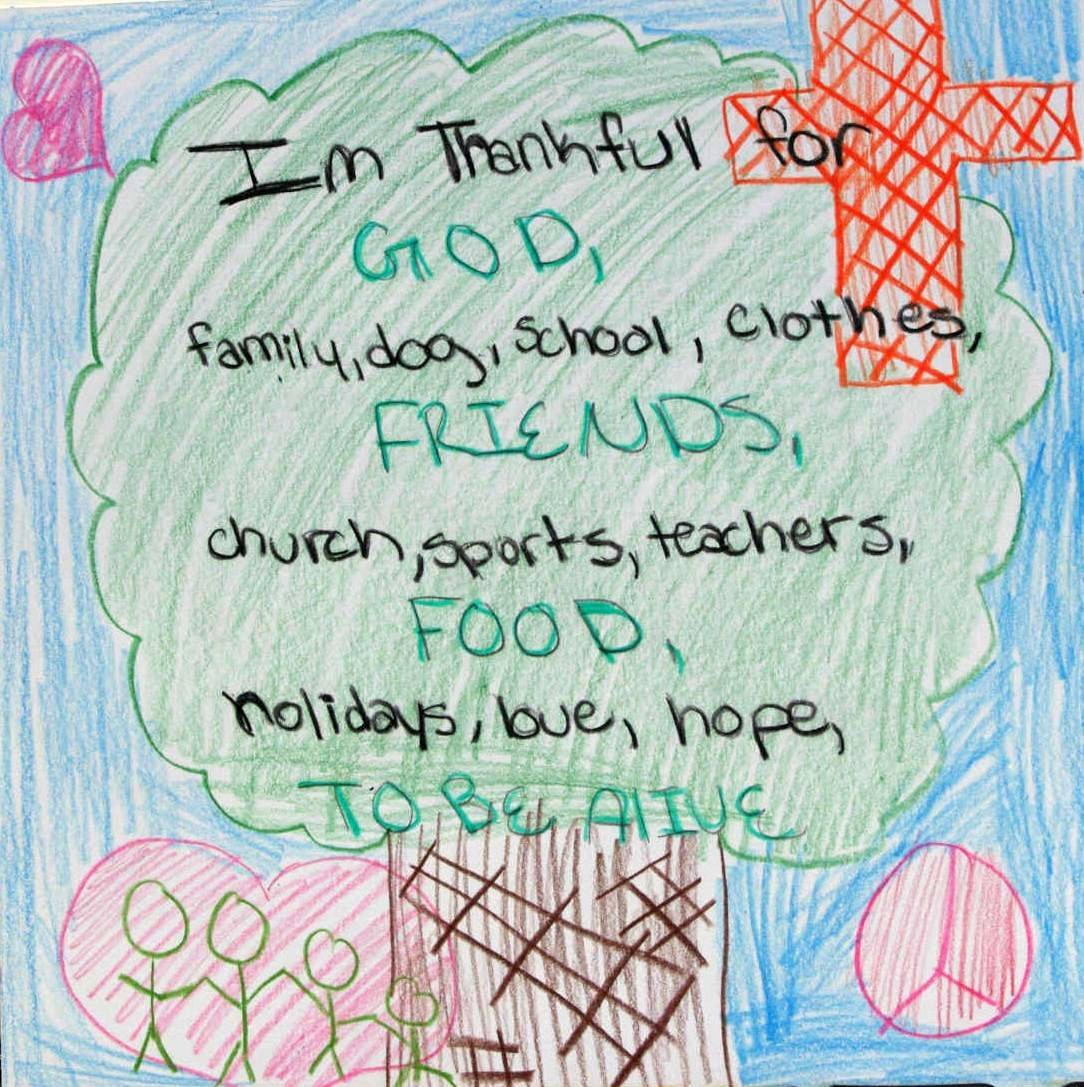 Im Thankful for
GOD,
family, dog, school, clothes,
FRIENDS,
church, sports, teachers,
FOOD,
holidays, love, hope,
TO BE AlIVE